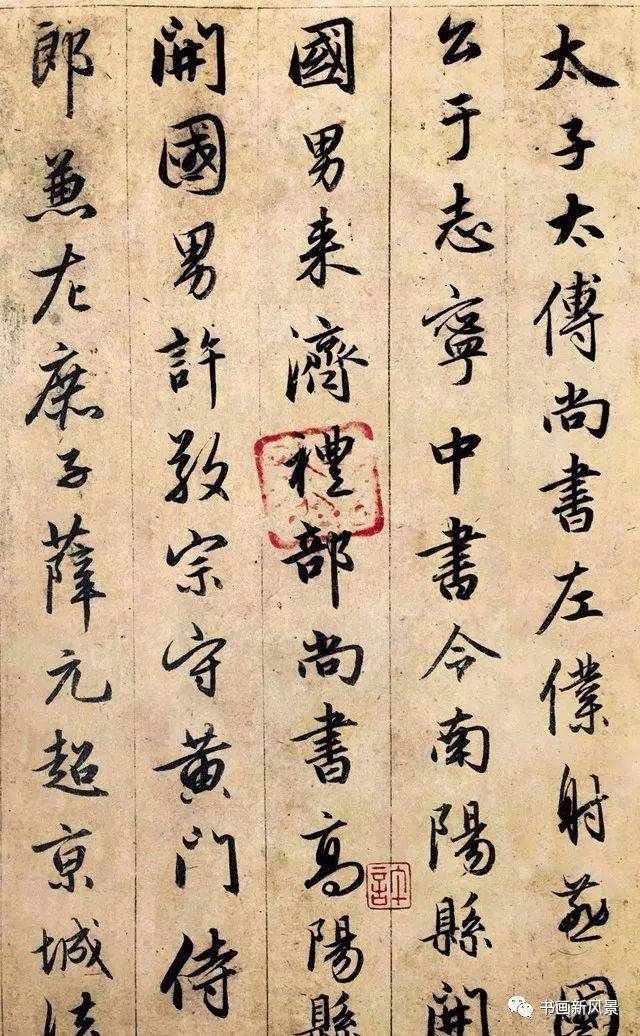 太子太傅尚書左僕射燕國
公于志寧中書令南陽縣開
國男来濟禮部尚書高陽縣
開國男許敬宗守黄門侍
郎兼左庶子薛元超京城
书画新风景